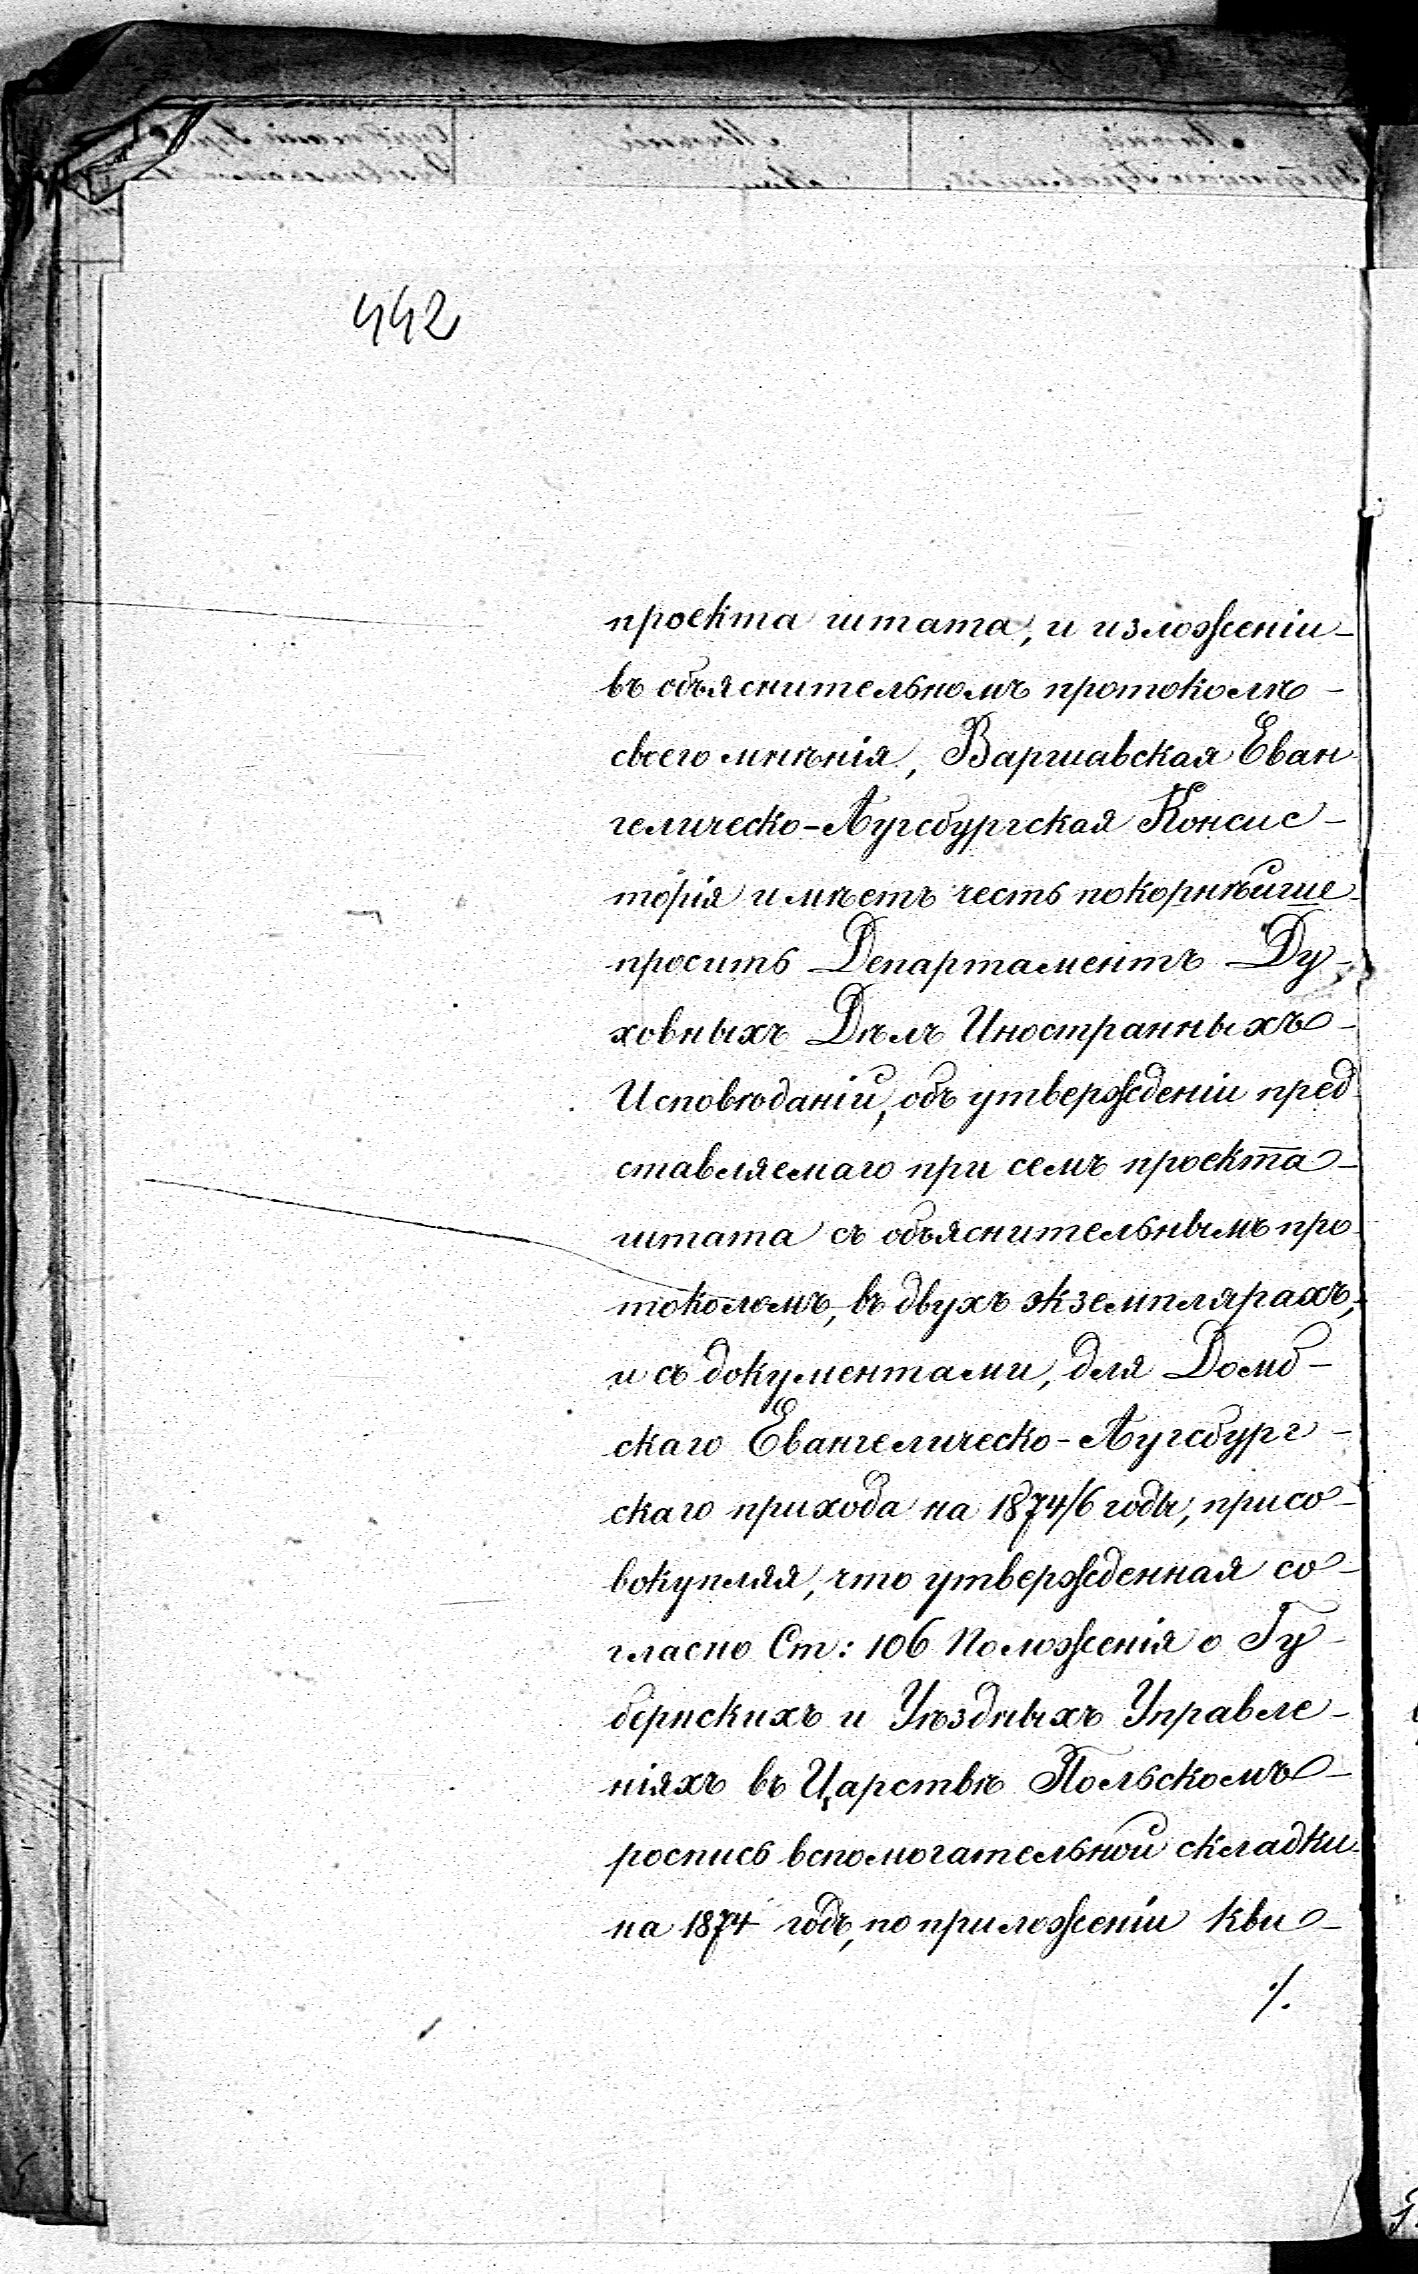 442
проекта штата, и изложеніи
въ объяснительномъ протоколѣ
своего мнѣнія, Варшавская Еван
гелическо-Аугсбургская Консис-
торія имѣетъ честь покорнѣйше
просить Департаментъ Ду-
ховныхъ Дѣлъ Иностранныхъ
Исповѣданій, объ утвержденіи пред
ставляемаго при семъ проекта
штата съ объяснительнымъ про
токоломъ, въ двухъ экземплярахъ,
и съ документами, для Домб-
скаго Евангелическо-Аугсбург-
скаго прихода на 1874/6 годы, присо-
вокупляя, что утвержденная со-
гласно Ст: 106 Положенія о Гу-
бернскихъ и Уѣздныхъ Управле-
ніяхъ въ Царствѣ Польскомъ
роспись вспомогательной складки
на 1874 годъ, по приложеніи кви-
·/.